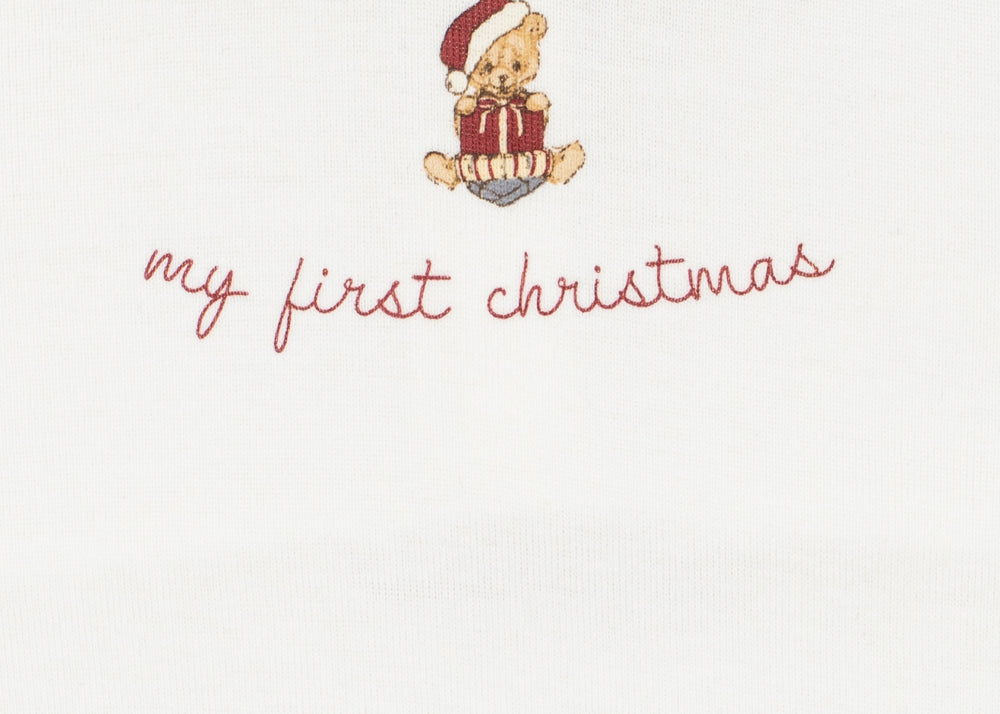 my first christmas